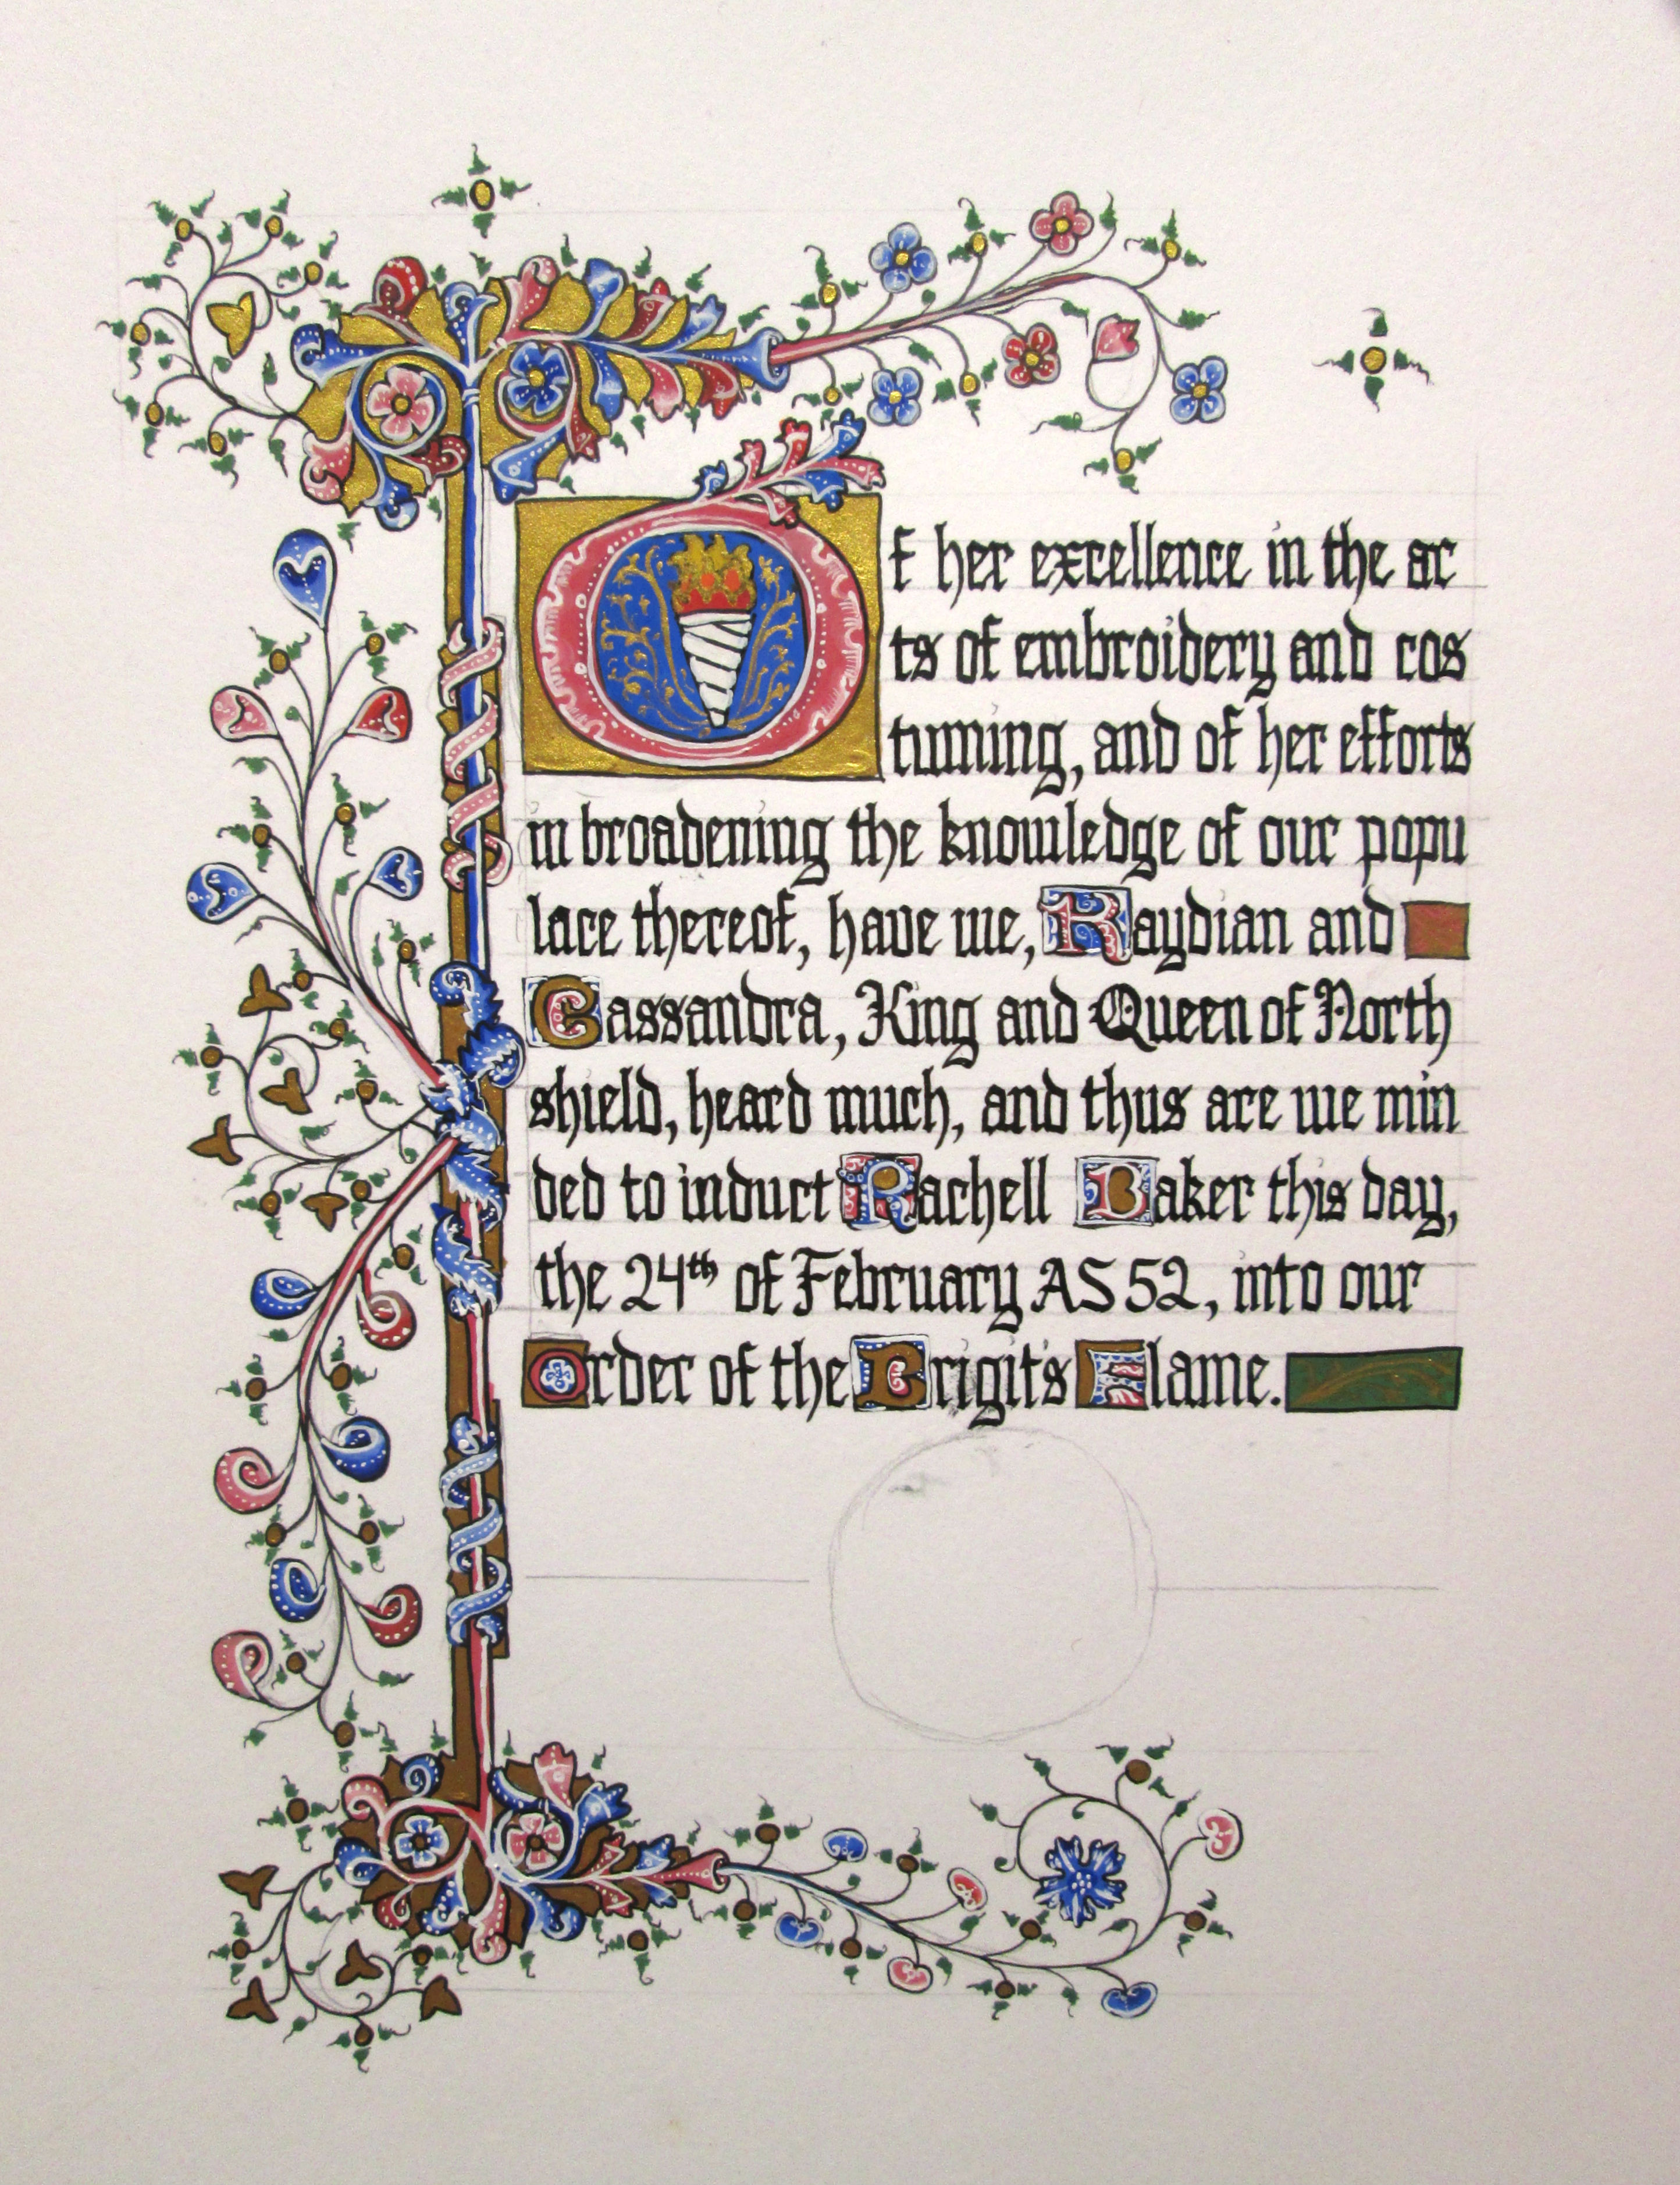 Of her excellence in the ac
ts of embroidery and cos
tuming, and of her efforts
in broadening the knowledge of our popu
lace thereof, have we, Raydian and
Cassandra, King and Queen of North
shield, heard much, and thus are we min
ded to induct Rachell Baker this day,
the 24th of February AS 52, into our
Order of the Brigit's Flame.